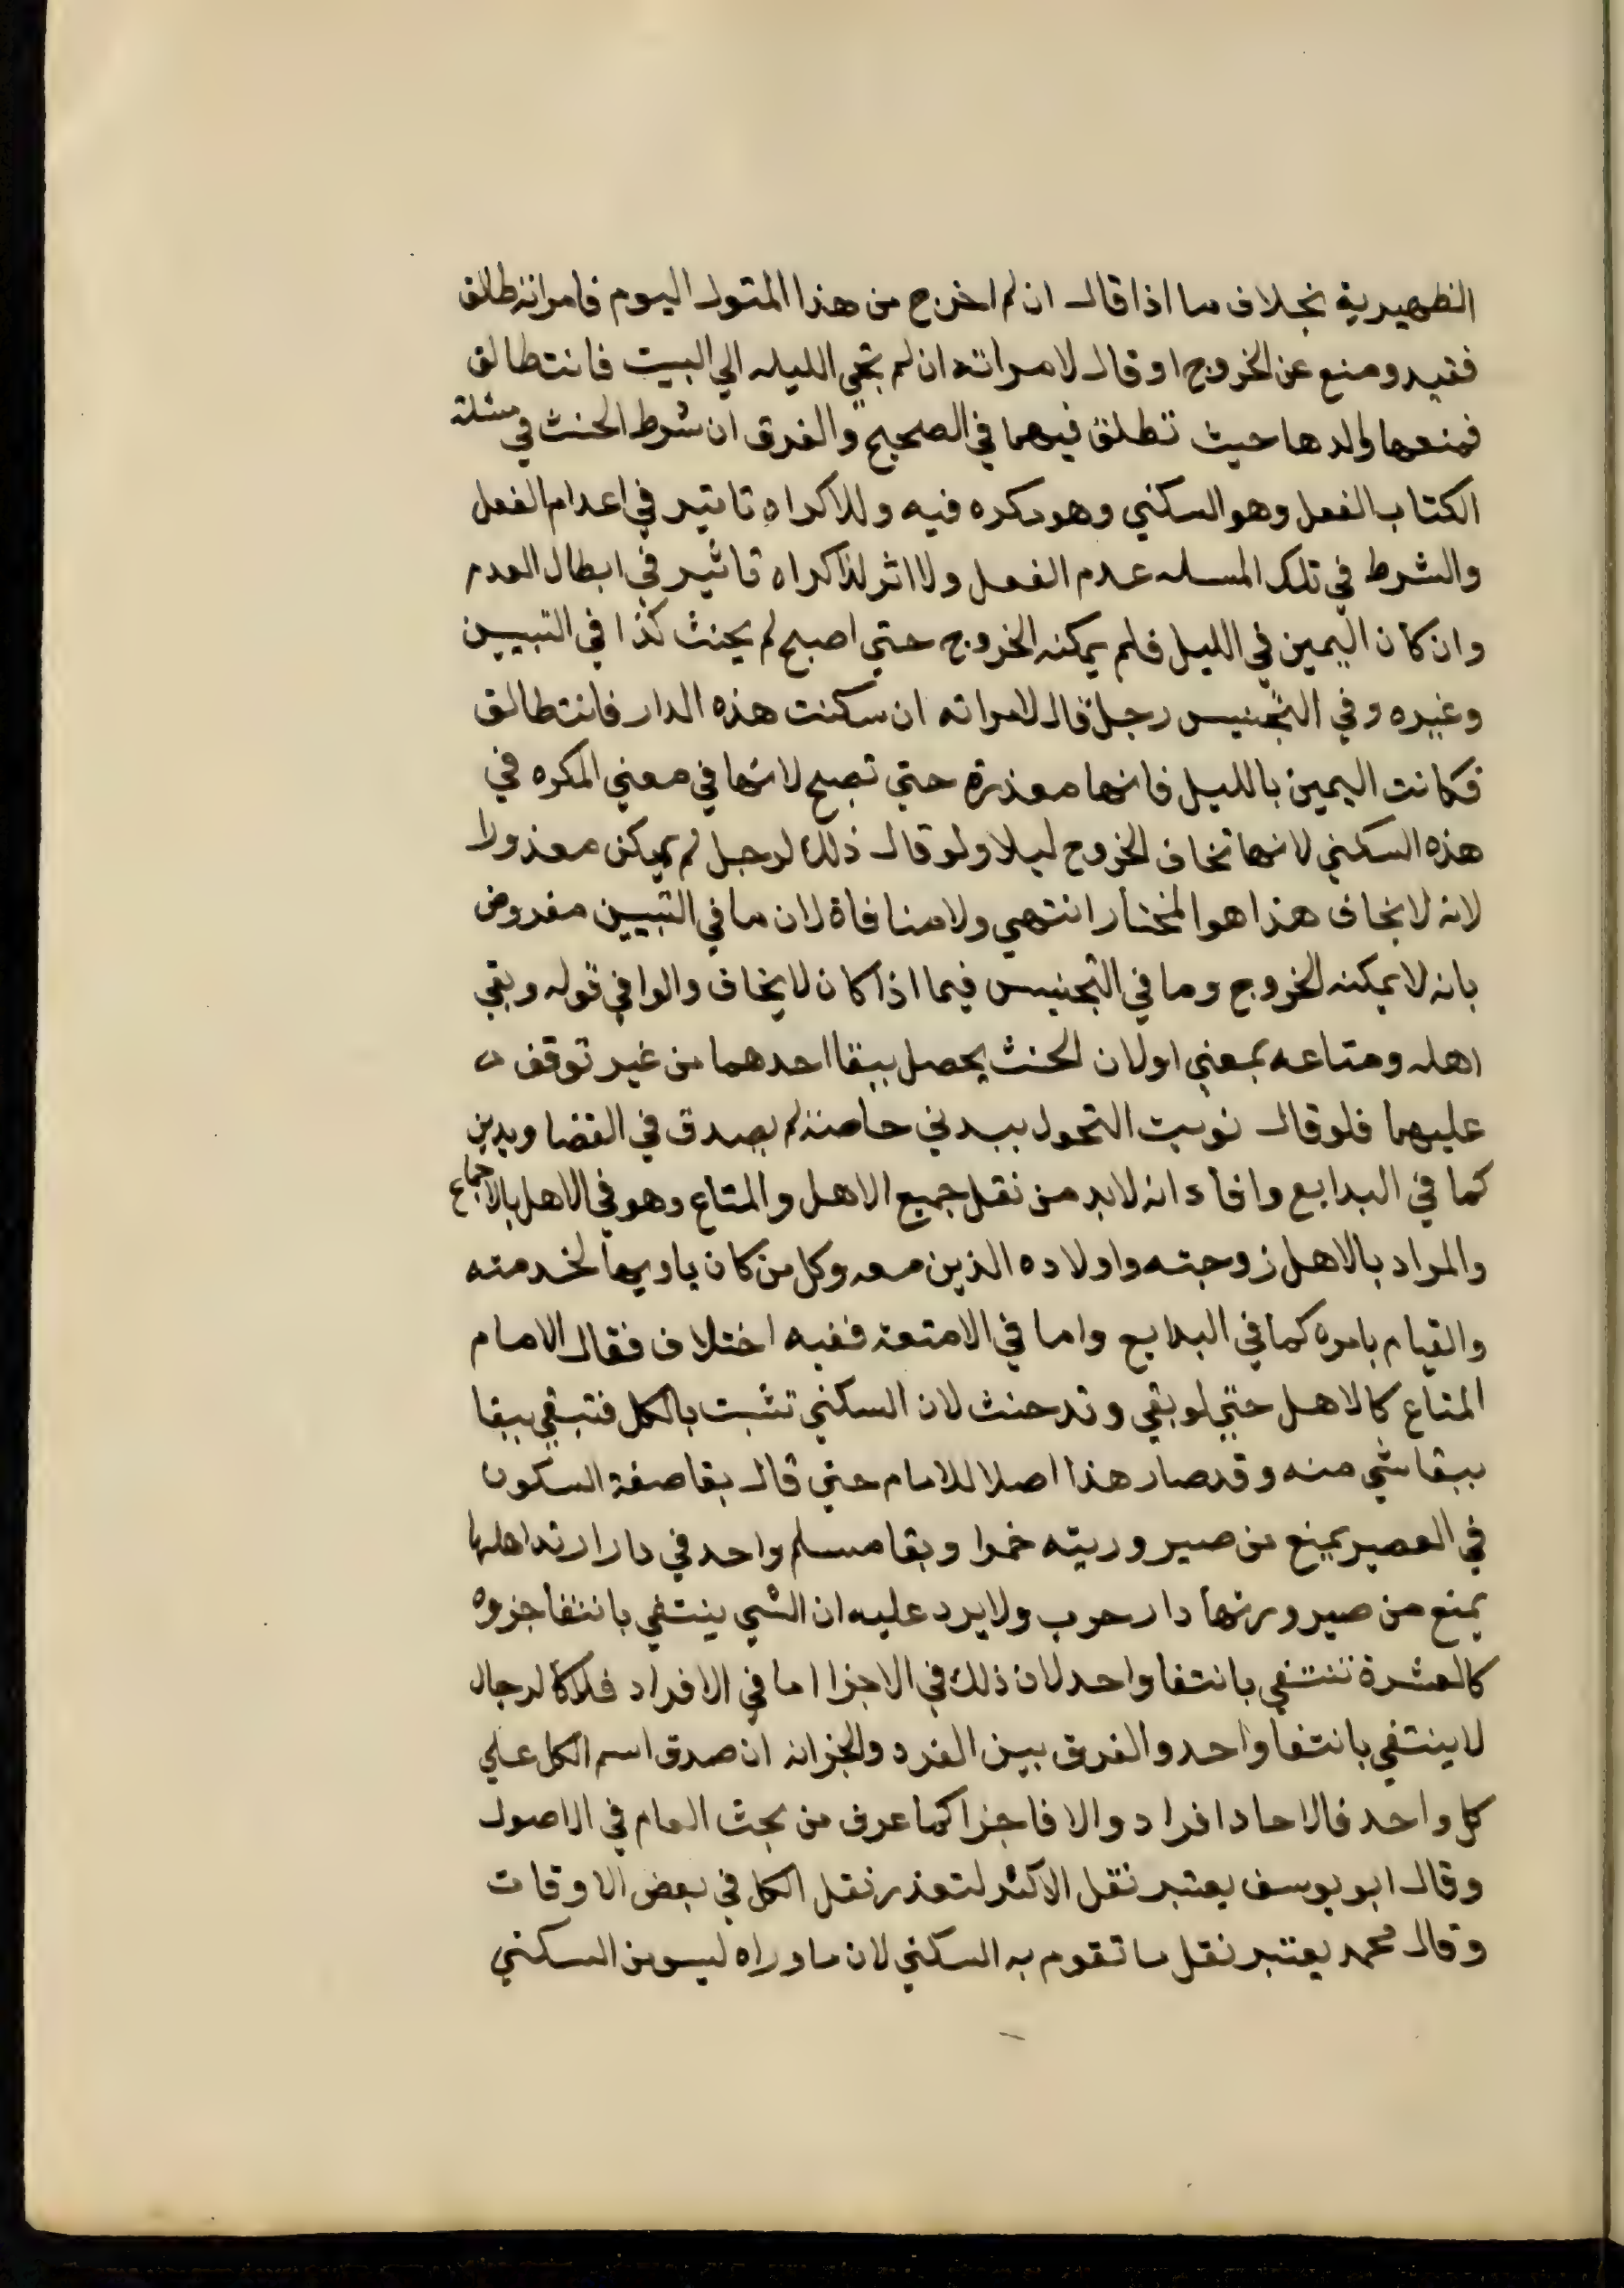 الظهيرية بخلاف ما اذا قال ان لم اخرج من هذا المنزل اليوم فامراته طالق
فقيد ومنع عن الخروج او قال لامراته ان لم تجي الليله الي البيت فانت طالق
فمنعها والدها حيث تطلق فيهما في الصحيح والفرق ان شرط الحنث في مسئلة
الكتاب الفعل وهو السكني وهو مكره فيه وللاكراه تاثير في اعدام الفعل
والشرط في تلك المسله عدم الفعل ولا اثر للاكراه تاثير في ابطال العدم
وان كان اليمين في الليل فلم يمكنه الخروج حتي اصبح لم يحنث كذا في التبيين
وغيره وفي التجنيس رجل قال لامراته ان سكنت هذه الدار فانت طالق
فكانت اليمين بالليل فانها معذرة حتي تصبح لانها في معني المكره في
هذه السكني لانها تخاف الخروج ليلا ولو قال ذلك لرجل لم يكن معذورا
لانه لا يخاف هذا هو المختار انتهي ولا منافاة لان ما في التبيين مفروض
بانه لا يمكنه الخروج وما في التجنيس فيما اذا كان لا يخاف والوا في قوله وبقي
اهله ومتاعه بمعني او لان الحنث يحصل ببقا احدهما من غير توقف
عليهما فلو قال نويت التحول ببدني خاصة لم يصدق في القضا ويدين
كما في البدايع وافاد انه لا بد من نقل جميع الاهل والمتاع وهو في الاهل بالاجماع
والمراد بالاهل زوجته واولاده الذين معه وكل من كان ياويها لخدمته
والقيام بامره كما في البدايع واما في الامتعة ففيه اختلاف فقال الامام
المتاع كالاهل حتي لو بقي وتد حنث لان السكني تثبت بالكل فتبقي ببقا
ببقا شي منه وقد صار هذا اصلا للامام حتي قال بقا صفة السكون
في العصير يمنع من صيروريته خمرا وبقا مسلم واحد في دار ارتد اهلها
يمنع من صيرورتها دار حرب ولا يرد عليه ان الشي ينتفي بانتفا جزوه
كالعشرة تنتفي بانتفا واحد لان ذلك في الاجزا اما في الافراد فلا كالرجال
لا ينتفي بانتفا واحد والفرق بين الفرد والجزانه ان صدق اسم الكل علي
كل واحد فالاحاد افراد والا فاجزا كما عرف من بحث العام في الاصول
وقال ابو يوسف يعتبر نقل الاكثر لتعذر نقل الكل في بعض الاوقات
وقال محمد يعتبر نقل ما تقوم به السكني لان ما وراه ليس من السكني